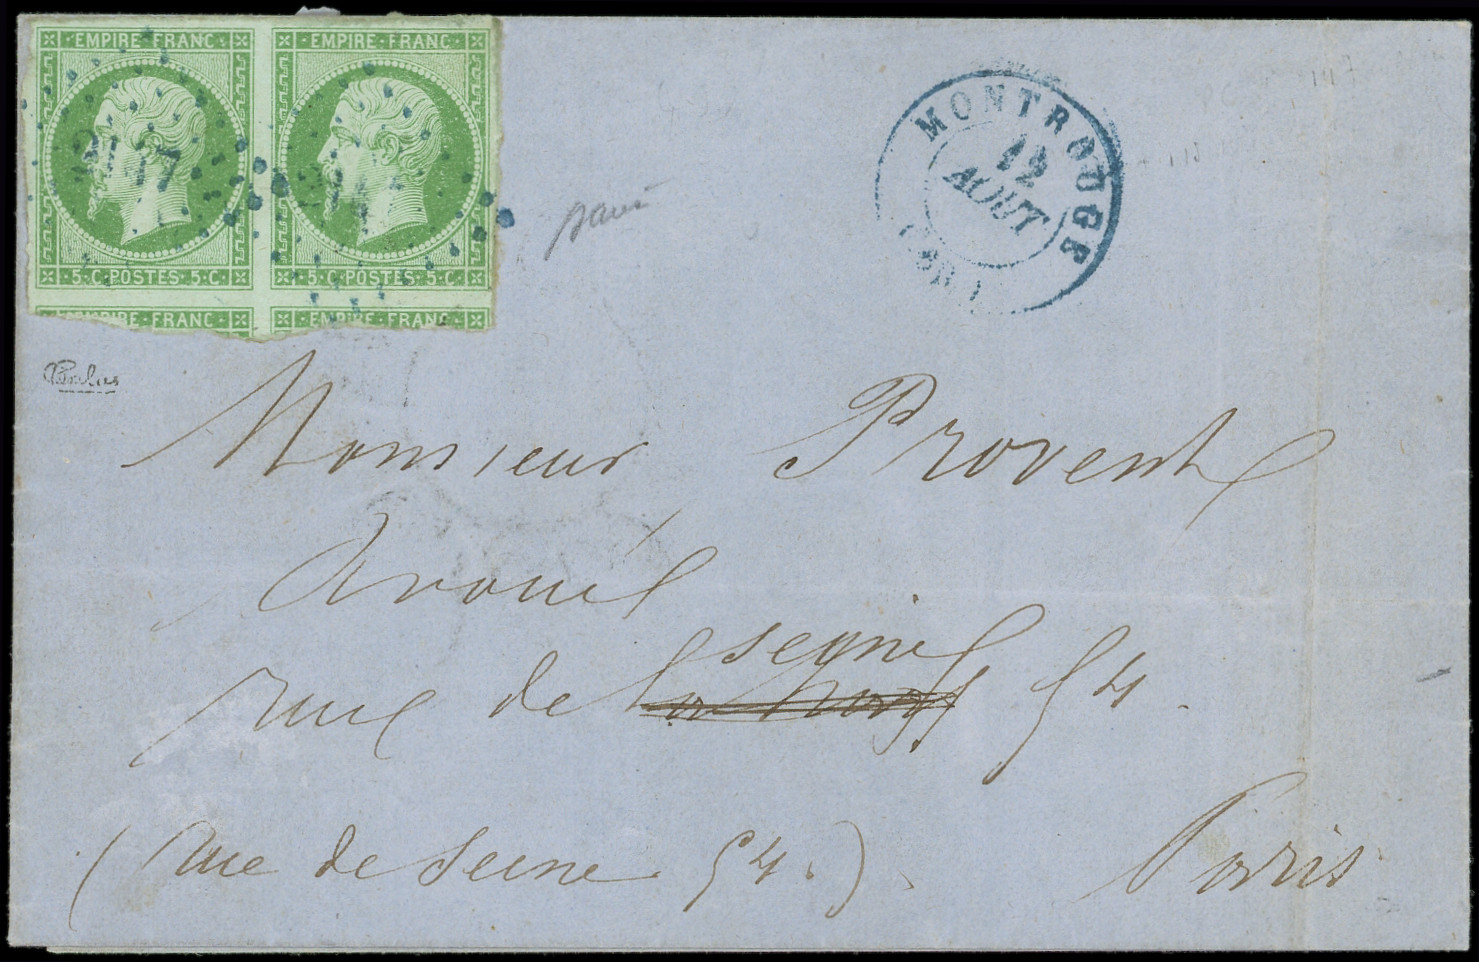 EMPIRE·FRANC· EMPIRE·FRANC·
2147 214
5·C·POSTES·5·C· 5·C·POSTES·5·C·
EMPIRE·FRANC· EMPIRE·FRANC·
MONTROUGE
12
AOUT
Monsieur Provent
Avoué
seyne
rue de 54.
(rue de seine 54.) Paris